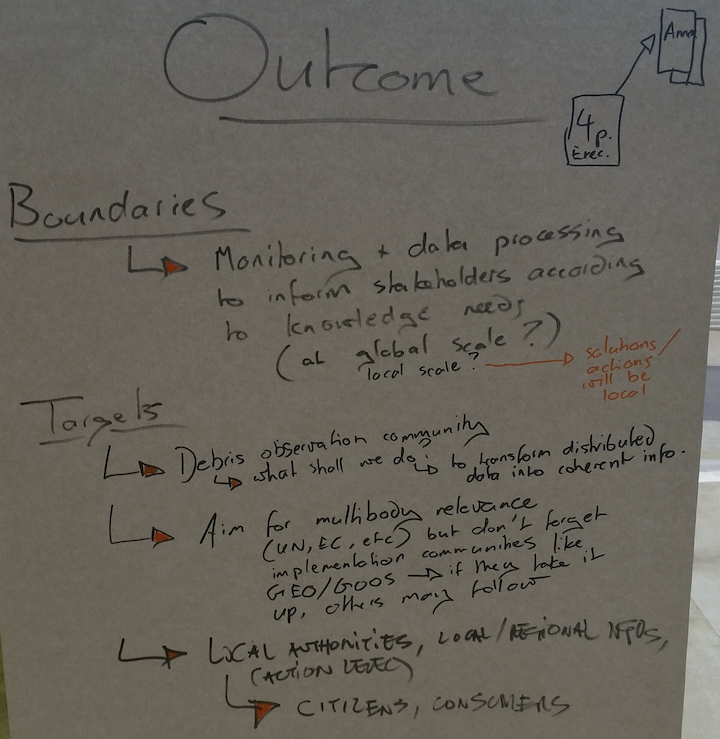 Outcome
Anne
4 p.
Exec.
Boundaries
Monitoring + data processing
to inform stakeholders according
to knowledge needs
(at global scale?)
local scale?
solutions/
actions
will be
local
Targets
Debris observation community
what shall we do? to transform distributed
data into coherent info.
Aim for multibody relevance
(UN, EC, etc) but don't forget
implementation communities like
GEO/GOOS → if they take it
up, others may follow
LOCAL AUTHORITIES, LOCAL/REGIONAL NGOs,
(ACTION LEVEL)
CITIZENS, CONSUMERS